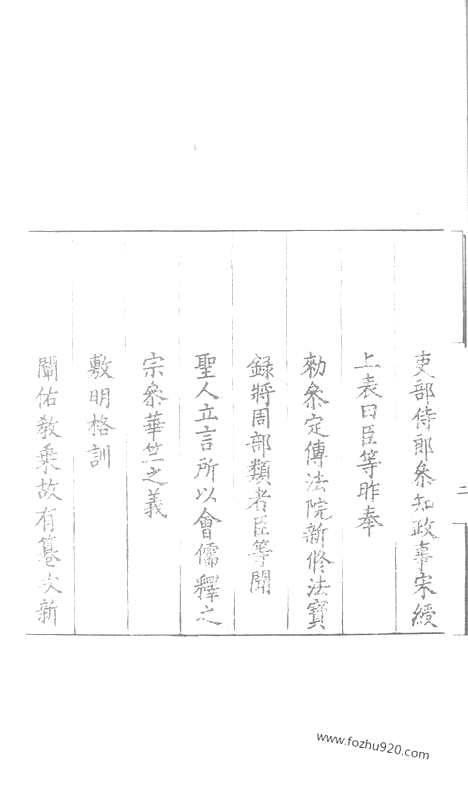 吏部侍郎叅知政事宋綬
上表曰臣等昨奉
勑叅定傳法院新修法寳
錄將周部類者臣等聞
聖人立言所以會儒釋之
宗叅華竺之義
敷明格訓
闡佑敎乗故有篹次新
二
www.fozhu920.com